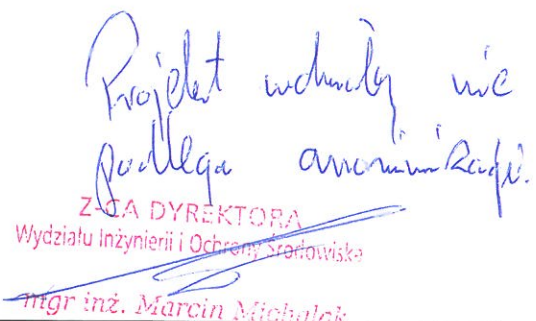 Projekt uchwały nie
podlega anonimizacji.
Z-CA DYREKTORA
Wydziału Inżynierii i Ochrony Środowiska
mgr inż. Marcin Michałek